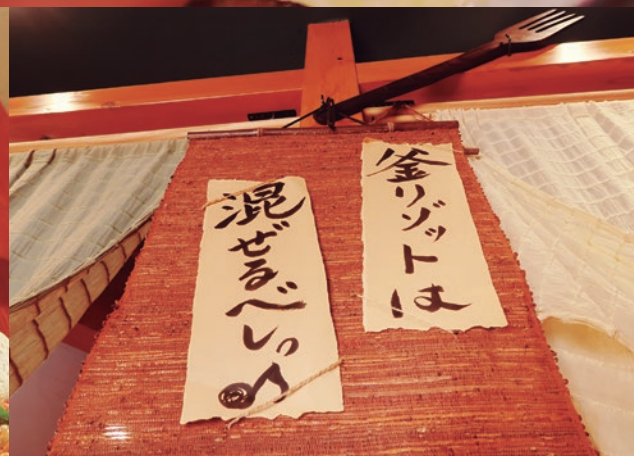 釜リゾットは
混ぜるべしっ♪